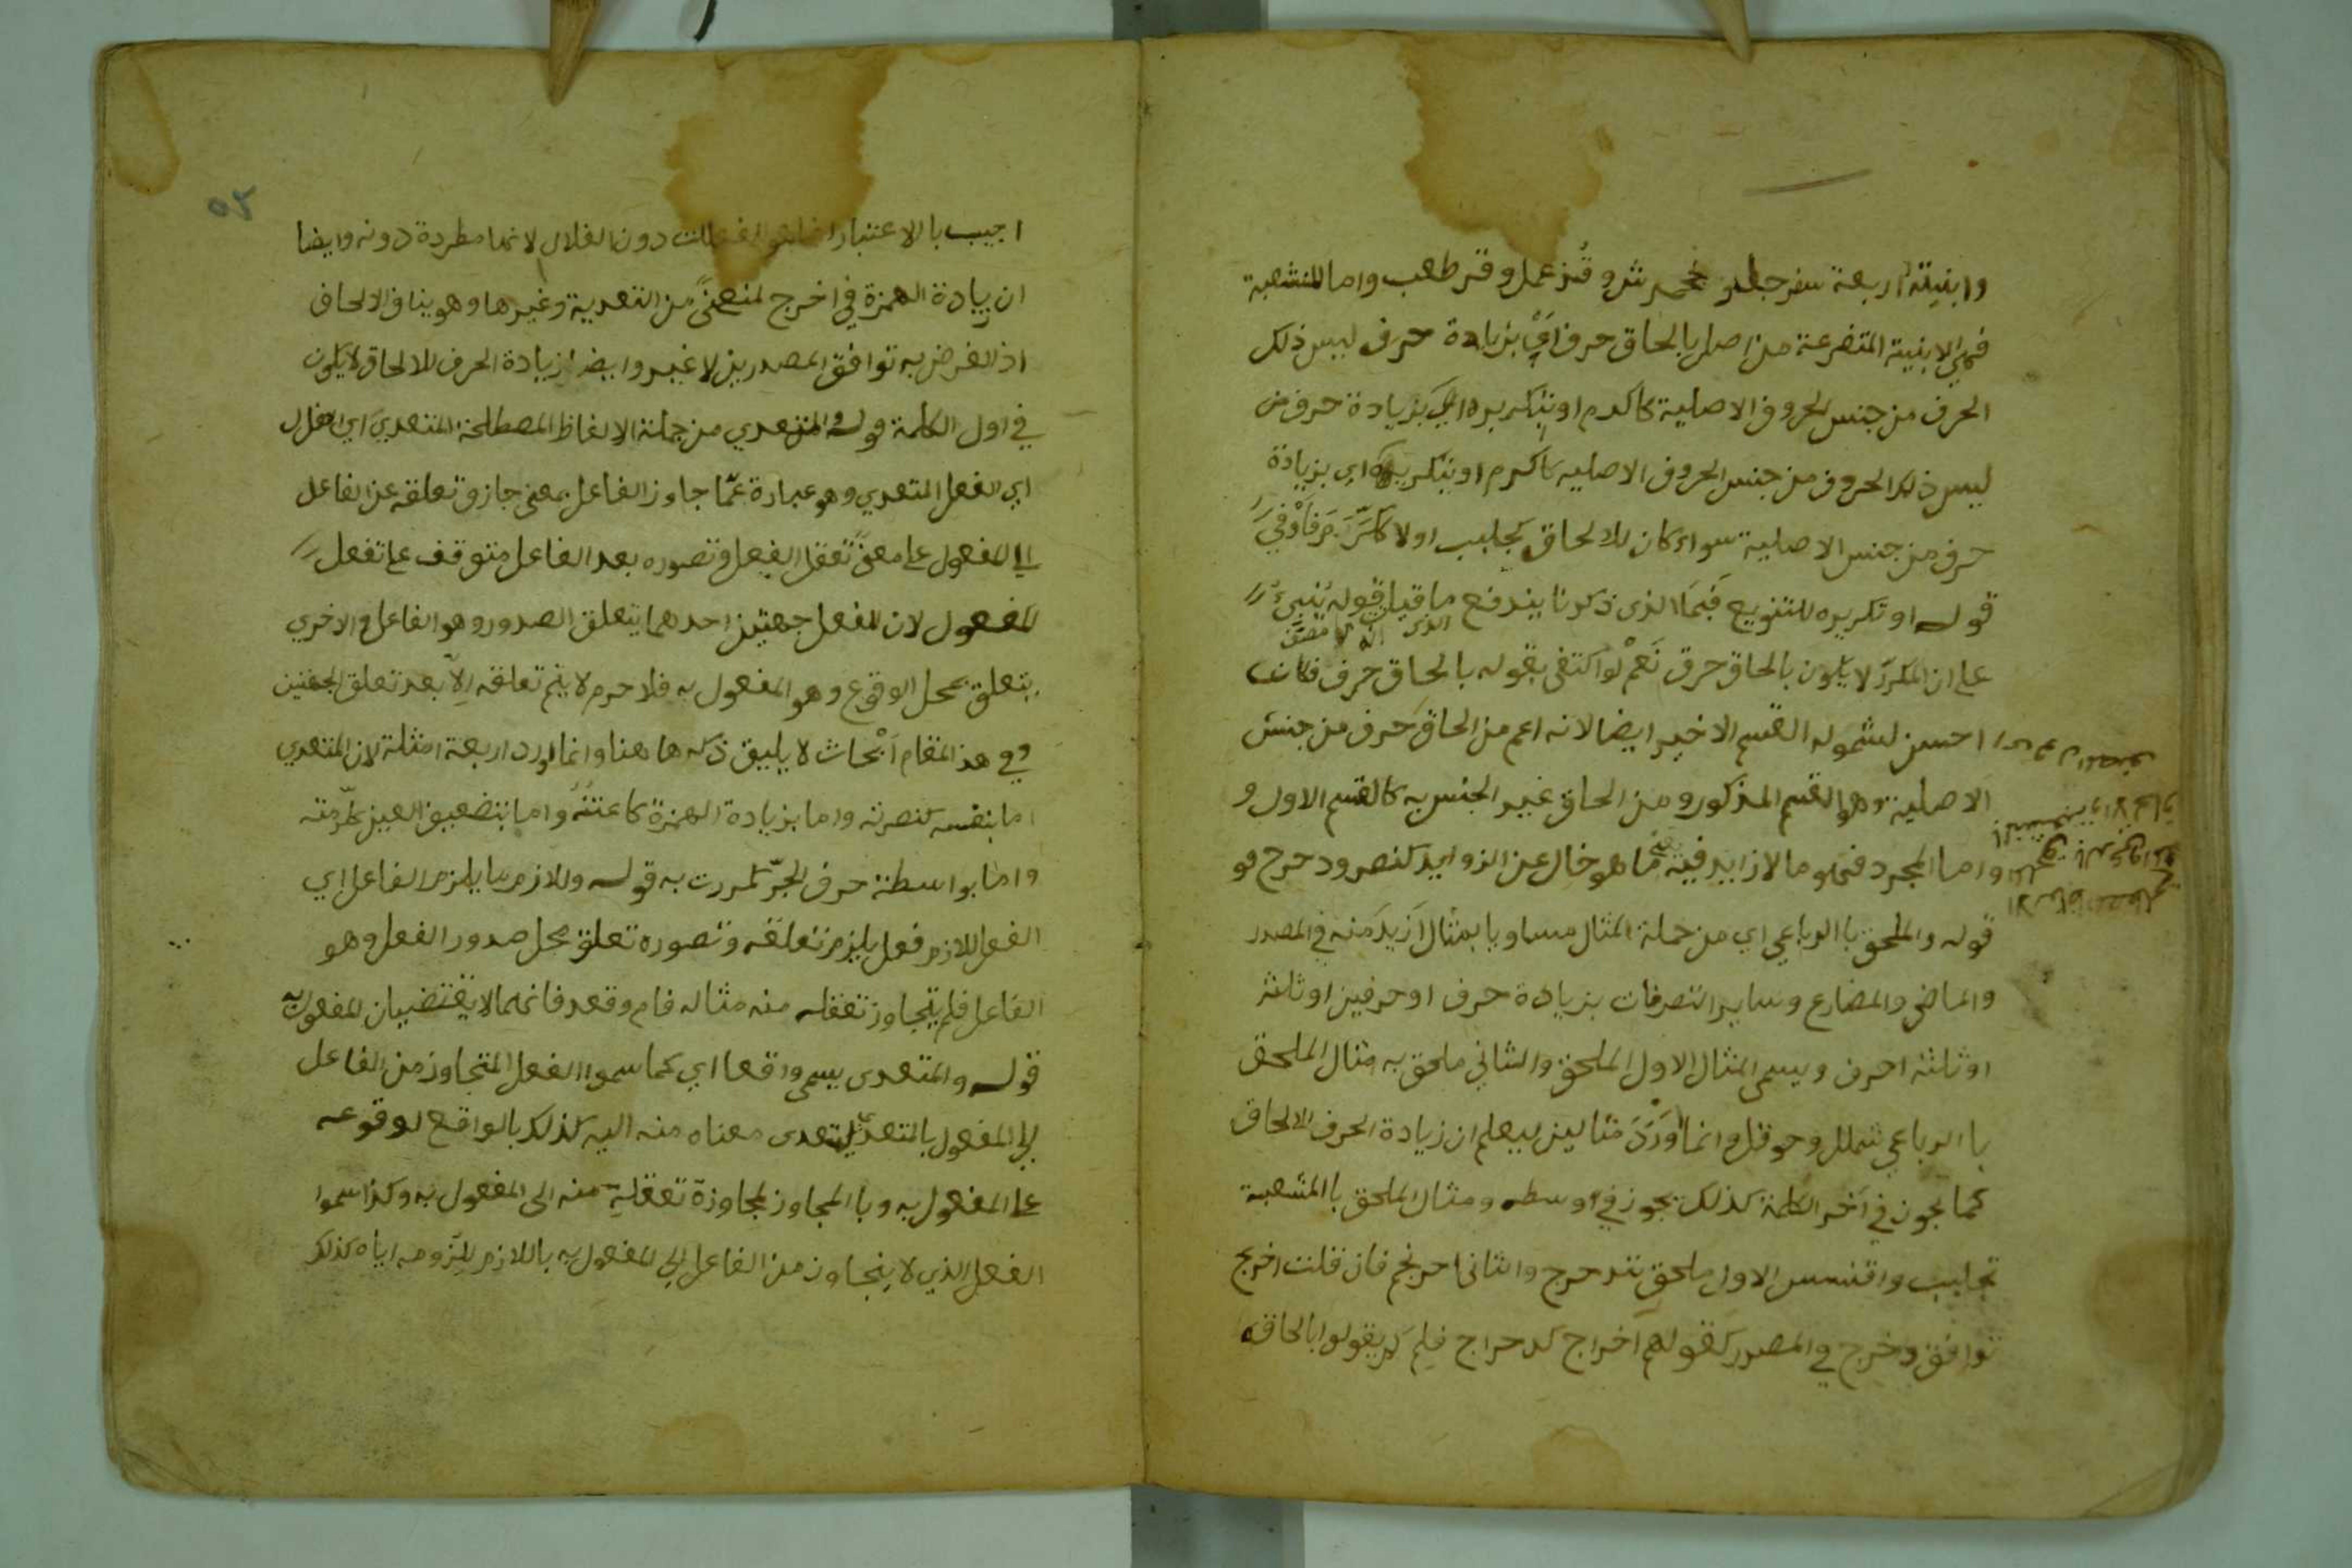 وابنيته اربعة سفرجل وجحمرش وقذعمل وقرطعب واما المنشعبة
فهي الابنية المتفرعة من اصل بالحاق حرف اي بزيادة حرف ليس ذلك
الحرف من جنس الحروف الاصلية كاكرم او بتكريره اي بزيادة حرف من
ليس ذلك الحروف من جنس الحروف الاصلية كاكرم او بتكريره اي بزيادة
حرف من جنس الاصلية سواء كان للالحاق كجلبب اولا ككرر
قوله او تكريره للتنويع فبما الذي ذكرنا يندفع ما قيل قوله ينبئ
على ان المكرر لا يكون بالحاق حرف نعم لو اكتفى بقوله بالحاق حرف فكان
احسن لشموله القسم الاخير ايضا لانه اعم من الحاق حرف من جنس
الاصلية وهو القسم المذكور ومن الحاق غير الجنس به كالقسم الاول و
واما المجرد فهو ما لا زايد فيه ما هو خال عن الزوايد كنصر ودحرج هو
قوله والملحق باالرباعي اي من جملة المثال مساويا بمثال ازيد منه في المصدر
والماضي والمضارع وساير التصرفات بزيادة حرف او حرفين او ثلثة
او ثلثة احرف ويسمى المثال الاول الملحق والثاني ملحق به مثال الملحق
باالرباعي شملل وحوقل وانما اورد مثالين ليعلم ان زيادة الحرف للالحاق
كما يجوز في آخر الكلمة كذلك يجوز في اوسطه ومثال الملحق باالمنشعبة
تجلبب واقعنسس الاول ملحق بتدحرج والثاني احرنجم فان قلت اخرج
توافق دحرج في المصدر كقولهم اخراج كدحراج فلم لم يقولوا بالحاقه
٥٢
اجيب باالاعتبار دون الفعلال لانها مطردة دونه وايضا
ان زيادة الهمزة في اخرج لمنعى من التعدية وغيرها وهو ينافي الالحاق
اذ الغرض به توافق المصدرين لا غير وايضا زيادة الحرف للالحاق لا يكون
في اول الكلمة قوله والمتعدي من جملة الالفاظ المصطلحة المتعدي اي الفعل
اي الفعل المتعدي وهو عبارة عما جاوز الفاعل بمعنى جاوز تعلقه عن الفاعل
الى المفعول على معنى تعقل الفعل وتصوره بعد الفاعل متوقف على تفعل
المفعول لان للفعل جهتين احدهما يتعلق الصدور وهو الفاعل والاخري
يتعلق بمحل الوقوع وهو المفعول به فلا جرم لا يتم تعلقه الا بعد تعلق الجهتين
وفي هذ المقام ابحاث لا يليق ذكرها هنا وانما اورد اربعة امثلة لان المتعدي
اما بنفسه كنصرته واما بزيادة الهمزة كاعنته واما بتضعيف العين كحرمته
واما بواسطة حرف الجر كمررت به قوله واللازم ما يلزم الفاعل اي
الفعل اللازم فعل يلزم تعلقه وتصوره تعلق محل صدور الفعل وهو
الفاعل فلم يتجاوز تعقله منه مثاله قام وقعد فانهما لا يقتضيان المفعول به
قوله والمتعدى يسمى واقعا اي كما سموا الفعل المتجاوز من الفاعل
الى المفعول بالمتعدي لتعدى معناه منه اليه كذلك بالواقع لوقوعه
على المفعول به وباالمجاوز لمجاوزة تعقله منه الى المفعول به وكذا سموا
الفعل الذي لا يتجاوز من الفاعل الى المفعول به باللازم للزومه اياه كذلك